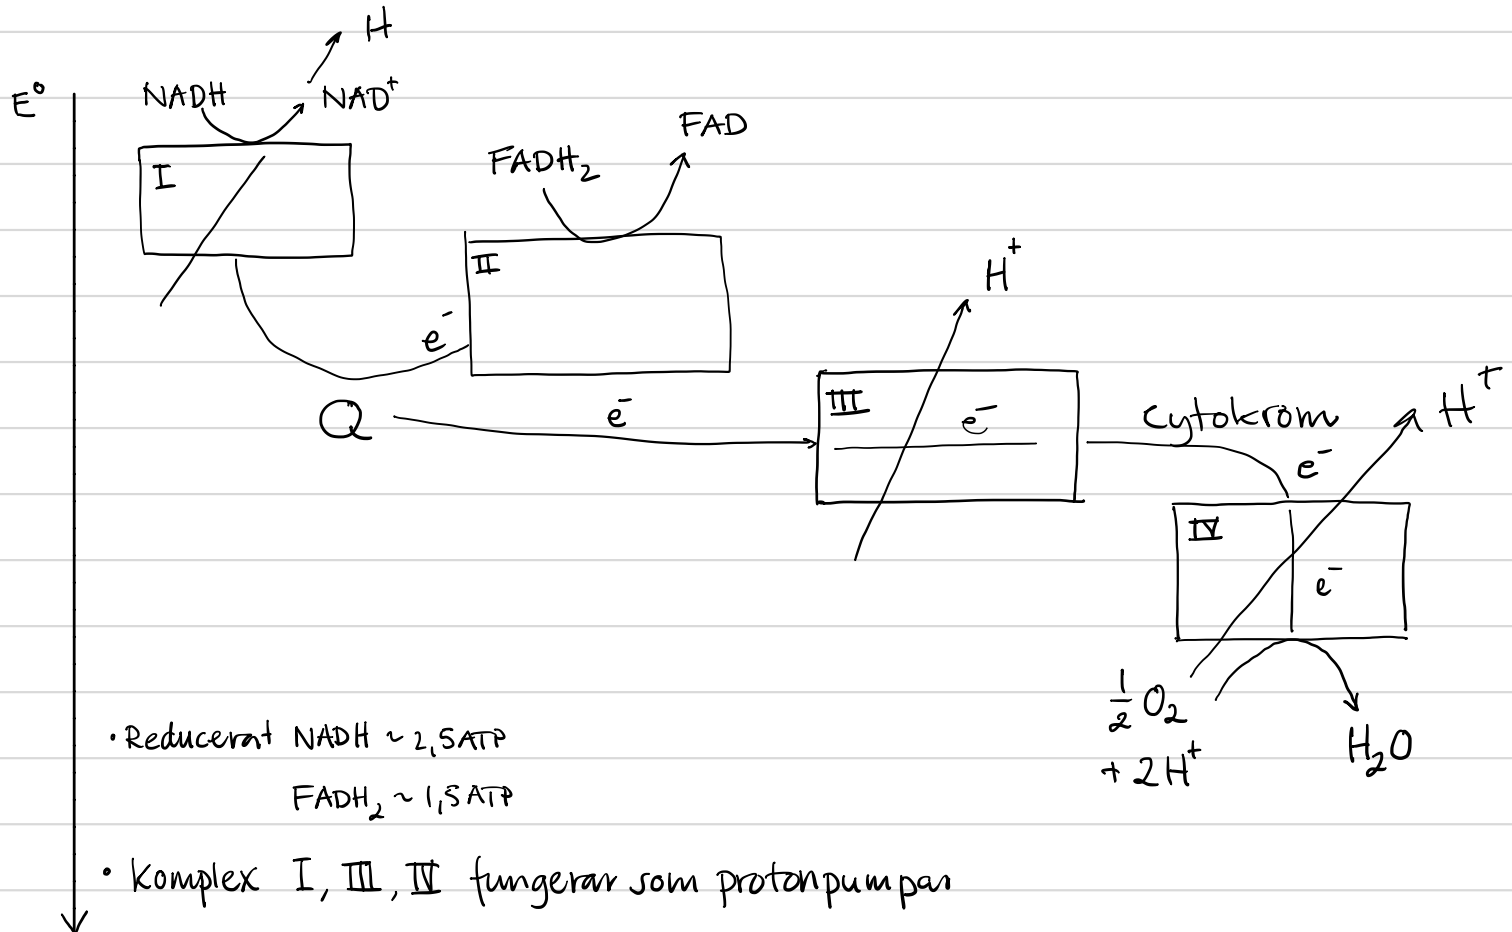 H
E°
NADH
NAD⁺
FAD
FADH₂
I
II
H⁺
e⁻
III
e⁻
Cytokrom
H⁺
Q
e⁻
e⁻
IV
e⁻
½ O₂
+ 2H⁺
H₂O
• Reducerat NADH ~ 2,5 ATP
FADH₂ ~ 1,5 ATP
• Komplex I, III, IV fungerar som protonpumpar